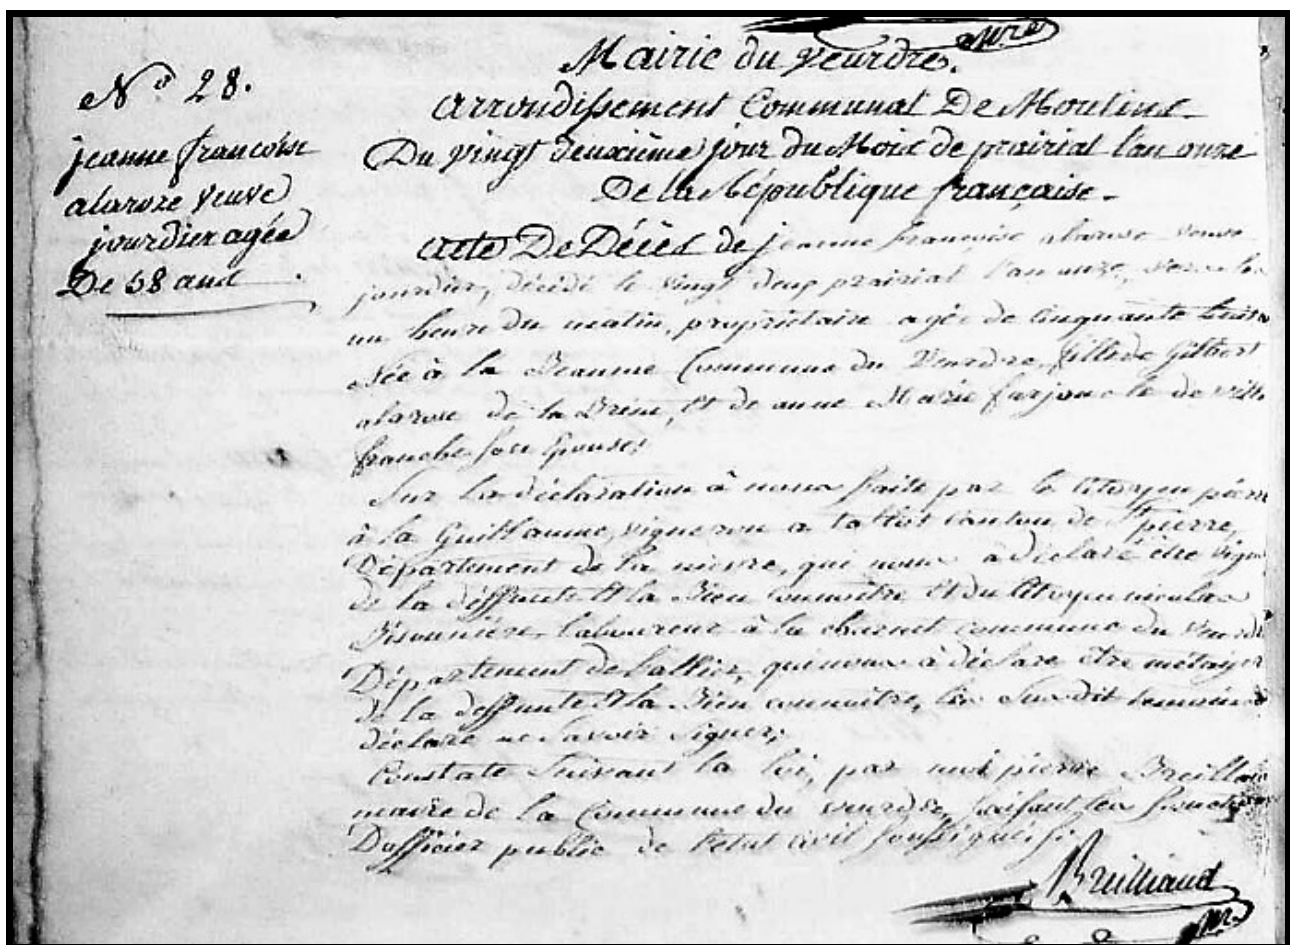 Mre
Mairie du Veurdre.
arrondissement Communal De Moulins
Du vingt deuxième jour du Mois de prairial l'an onze
De la République française.
N.o 28.
jeanne francoise
alaroze veuve
jourdier agée
De 58 ans
acte De Décès de jeanne françoise alarose veuve
jourdier, décédé le vingt deux prairial l'an onze, vers les
un heure du matin, propriétaire agée de cinquante huit
née à la Commune du Veurdre, fille de Gilbert
alarose de la Brena, et de anne Marie de Ville
franche son épouse;
Sur la déclaration à nous faite par le Citoyen pierre
à la Guillaume, vigneron a canton de St pierre,
Département de la nievre, qui nous à déclaré être vigne
de la deffunte et la Bien connoitre et du Citoyen nicolas
laboureur à la commune du Veurdre
Département de Lallier, qui nous à déclaré être métayer
de la deffunte et la Bien connoître, les Susdit temoins
déclaré ne Savoir Signer;
Constaté Suivant la loi, par moi pierre Breilliaud
maire de la Commune du veurdre, faisant les fonctions
Dofficier public de l'état civil Soussigné;
Breilliaud
Mre